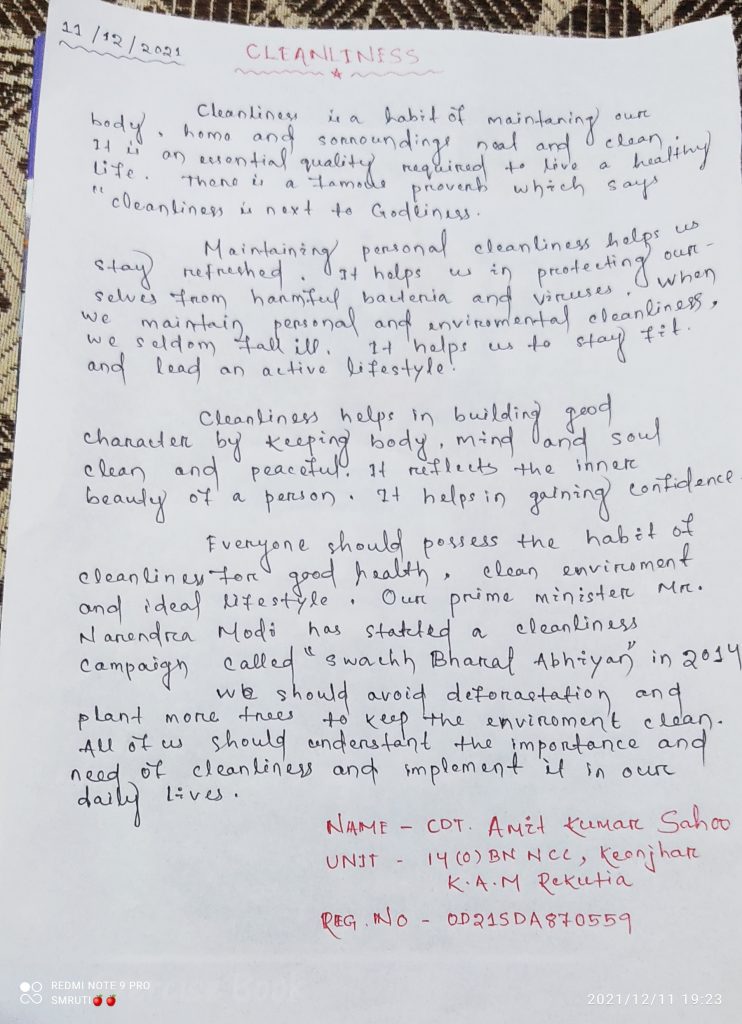 11/12/2021
CLEANLINESS
Cleanliness is a habit of maintaning our
body, home and sorroundings neat and clean.
It is an essential quality required to live a healthy
life. There is a famous proverb which says
"cleanliness is next to Godliness.
Maintaining personal cleanliness helps us
stay refreshed. It helps us in protecting our-
selves from harmful bacteria and viruses. When
we maintain personal and enviromental cleanliness,
we seldom fall ill. It helps us to stay fit.
and lead an active lifestyle.
Cleanliness helps in building good
character by keeping body, mind and soul
clean and peaceful. It reflects the inner
beauty of a person. It helps in gaining confidence.
Everyone should possess the habit of
cleanliness for good health, clean enviroment
and ideal lifestyle. Our prime minister Mr.
Narendra Modi has statted a cleanliness
campaign called "swachh Bharat Abhiyan" in 2014
We should avoid deforastation and
plant more trees to keep the enviroment clean.
All of us should understant the importance and
need of cleanliness and implement it in our
daily lives.
NAME - CDT. Amit Kumar Sahoo
UNIT - 14(O) BN NCC, Keonjhar
K.A.M Rekutia
REG. NO - OD21SDA870559
REDMI NOTE 9 PRO
SMRUTI🍎🍎
2021/12/11 19:23